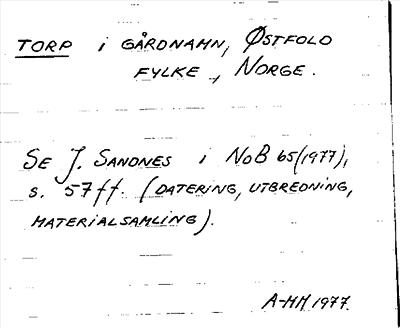 TORP i GÅRDNAMN, ØSTFOLD
FYLKE, NORGE.
SE J. SANDNES i NoB 65(1977),
s. 57ff. (DATERING, UTBREDNING,
MATERIALSAMLING).
A-HH 1977.